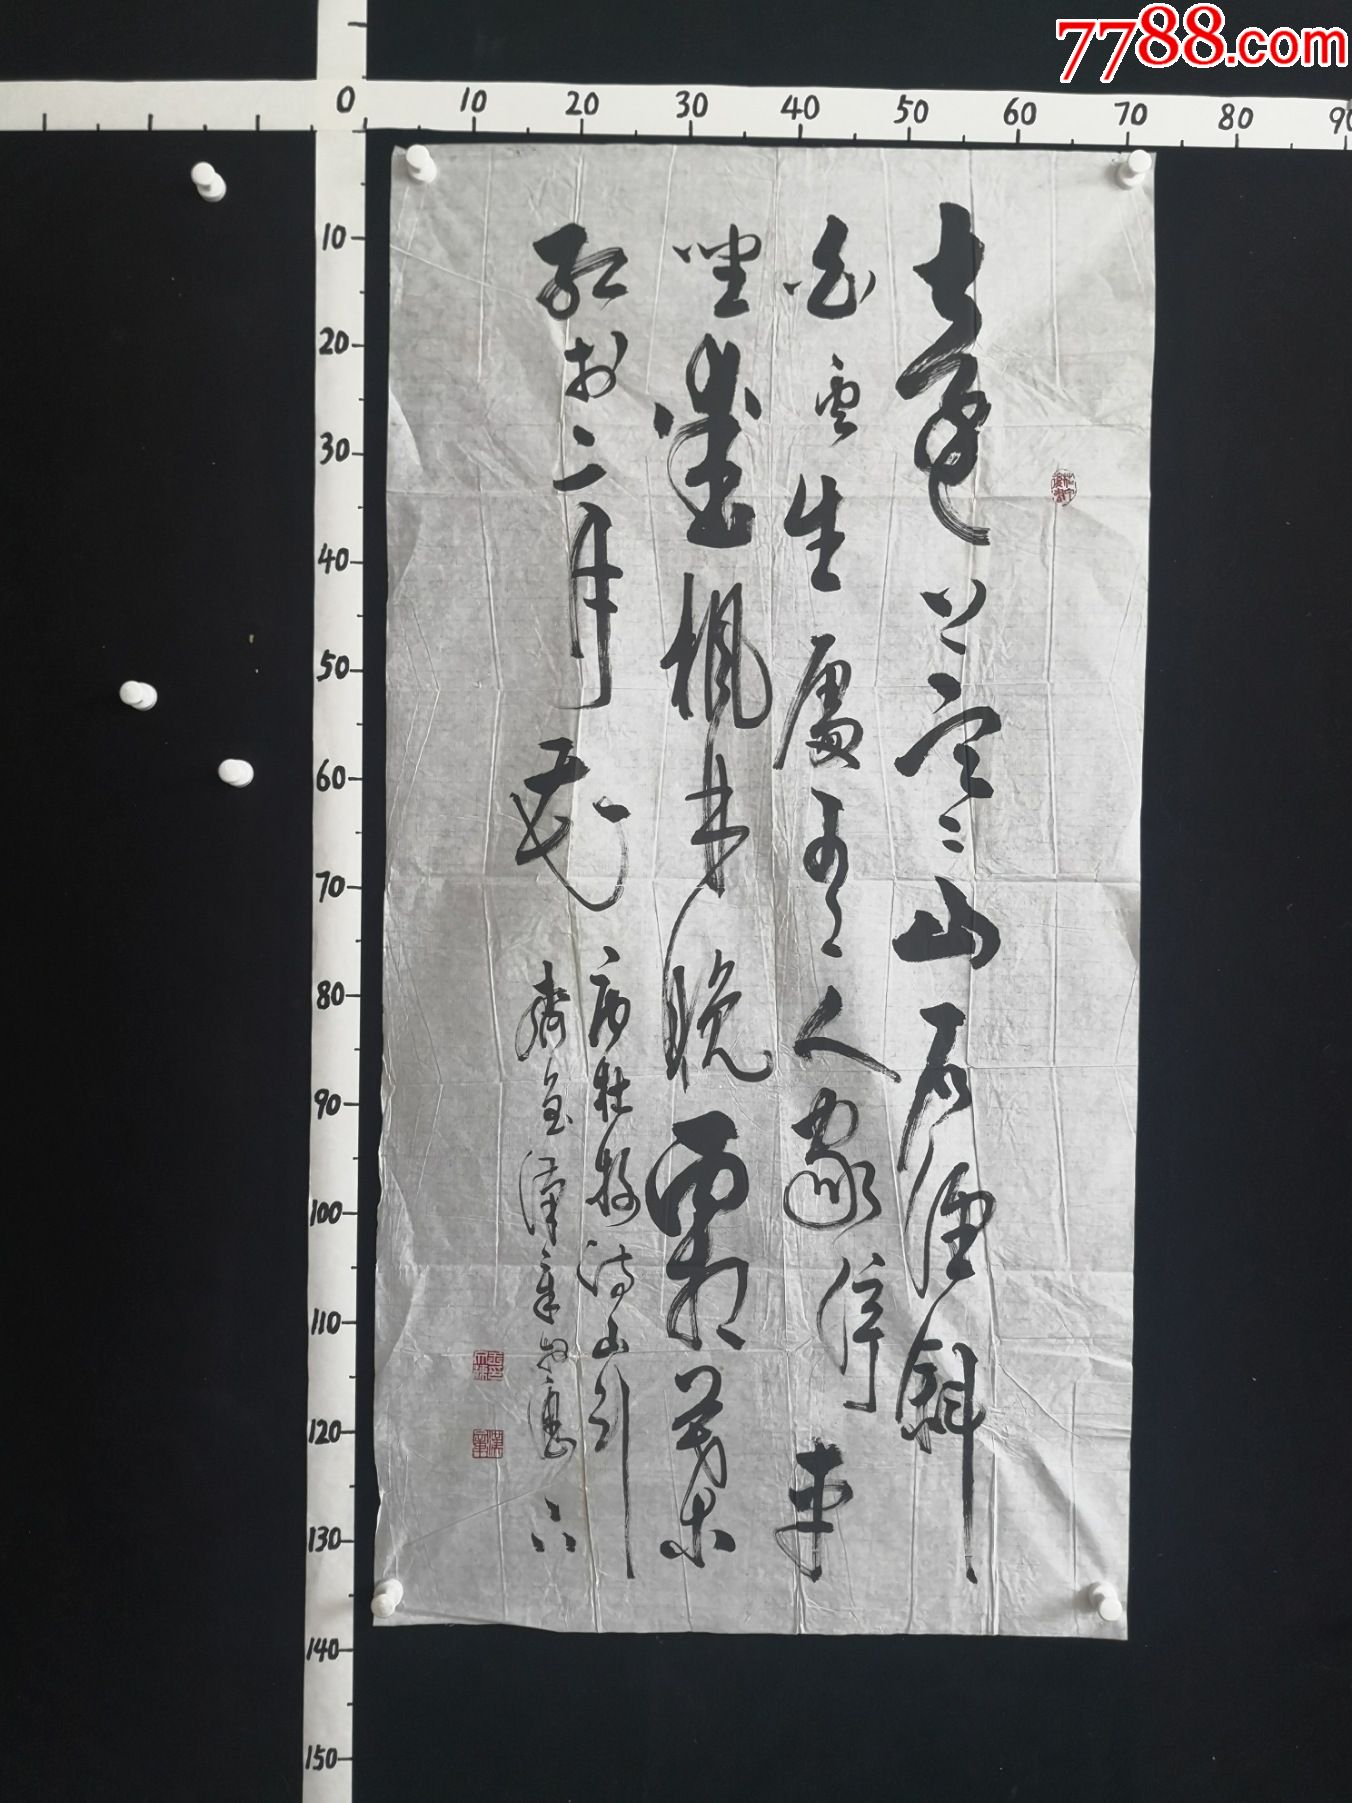 7788.com
0 10 20 30 40 50 60 70 80 90
10
20
30
40
50
60
70
80
90
100
110
120
130
140
150
遠上寒山石徑斜
白雲生處有人家停車
坐愛楓林晚霜葉
紅於二月花
唐杜牧詩山行